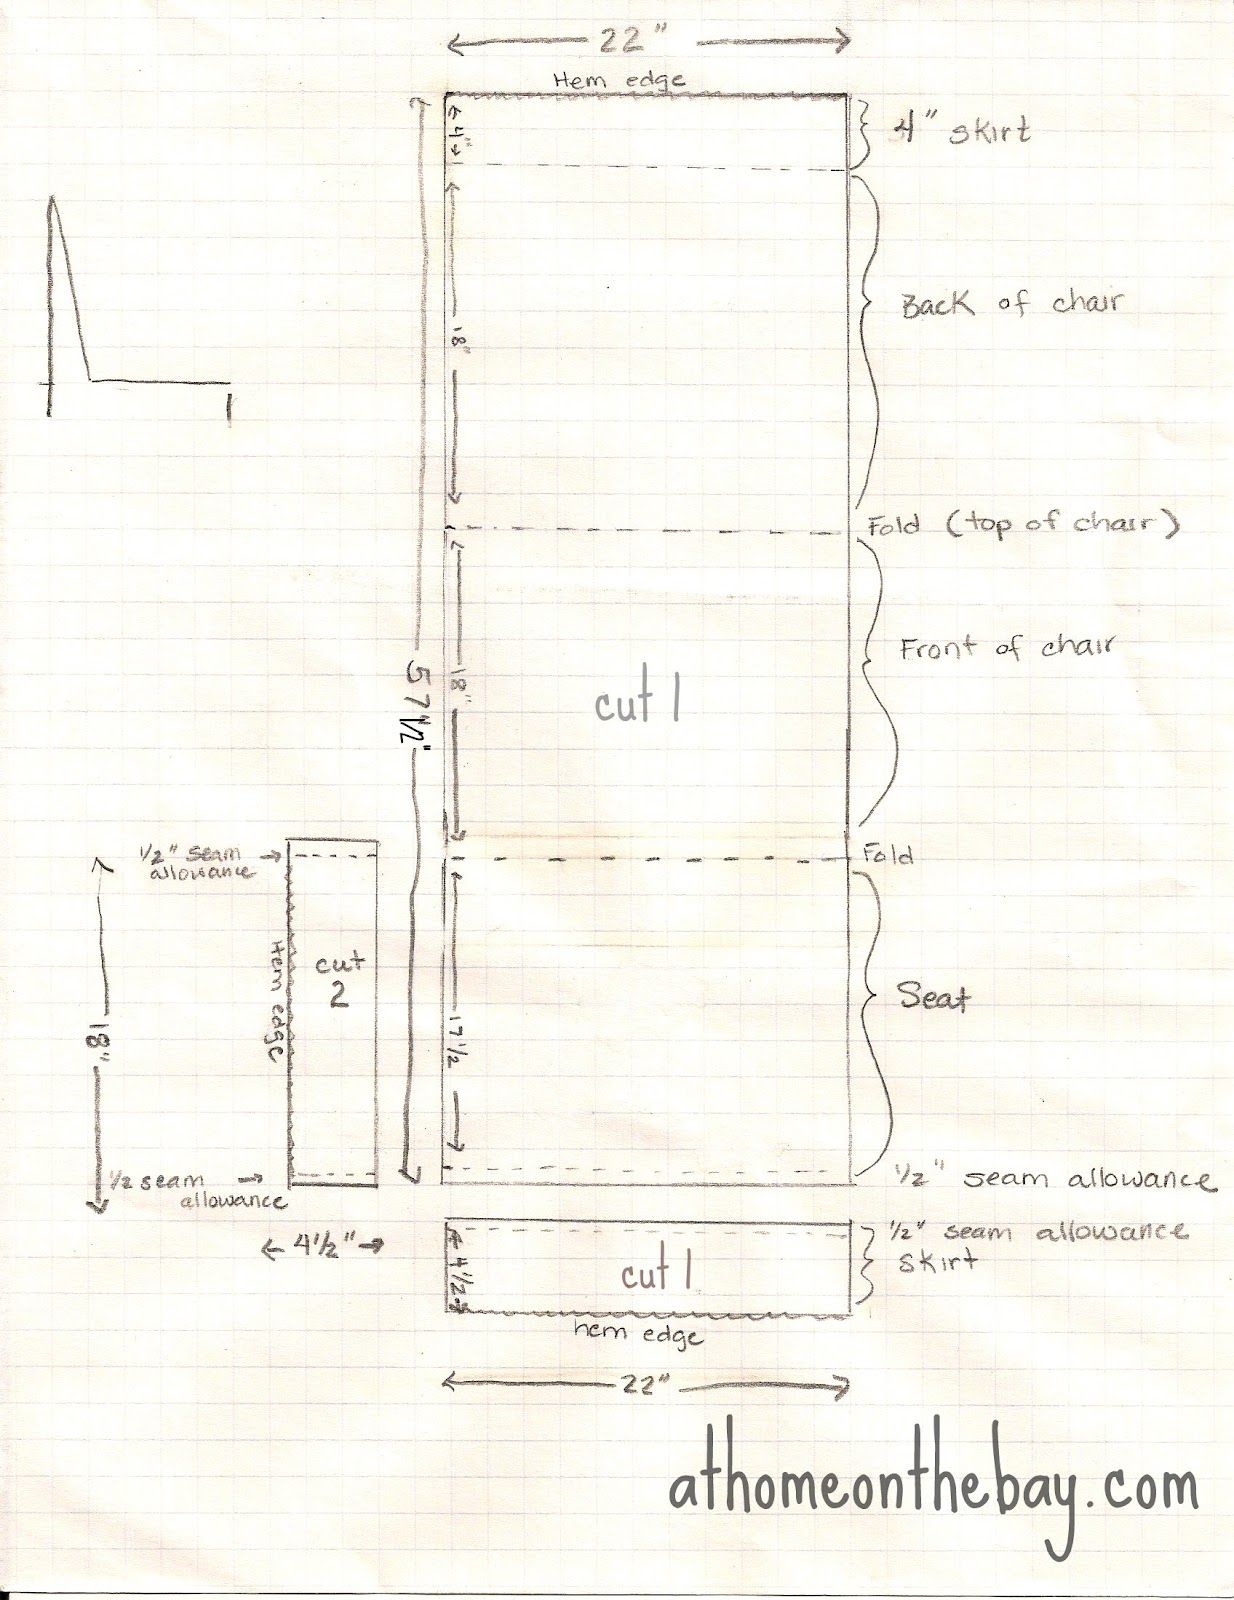 22"
Hem edge
4"
4" skirt
18"
Back of chair
Fold (top of chair)
57 1/2"
18"
Front of chair
cut 1
Fold
1/2" seam
allowance
Hem edge
cut
2
18"
17 1/2
Seat
1/2 seam
allowance
1/2" seam allowance
4 1/2"
4 1/2
1/2" seam allowance
skirt
cut 1
hem edge
22"
athomeonthebay.com